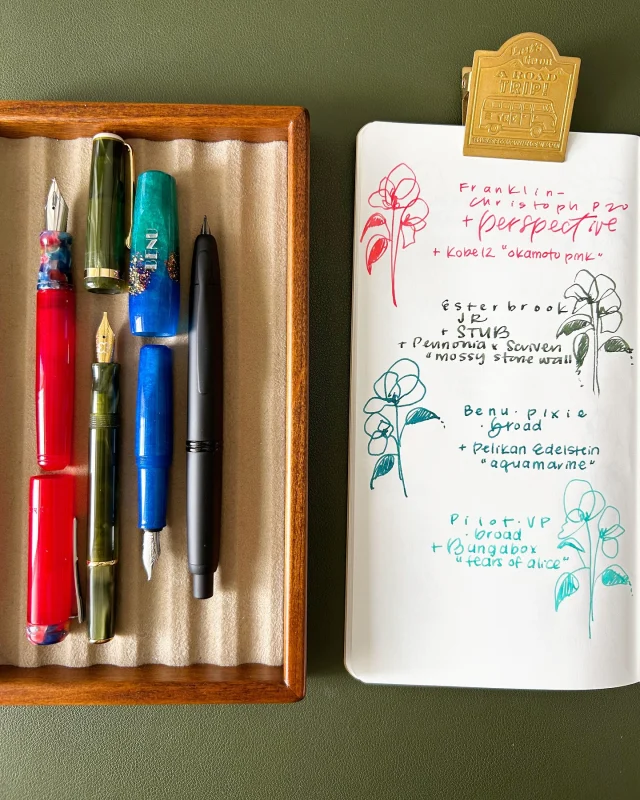 Let's
Go on
A ROAD
TRIP!
BENU
Franklin-
Christoph P20
+ perspective
+ Kobe 12 "okamoto pink"
Esterbrook
JR
+ STUB
+ Pennonia x Scriven
"mossy stone wall"
Benu · pixie
· broad
+ Pelikan Edelstein
"aquamarine"
Pilot · VP
· broad
+ Bungabox
"tears of alice"